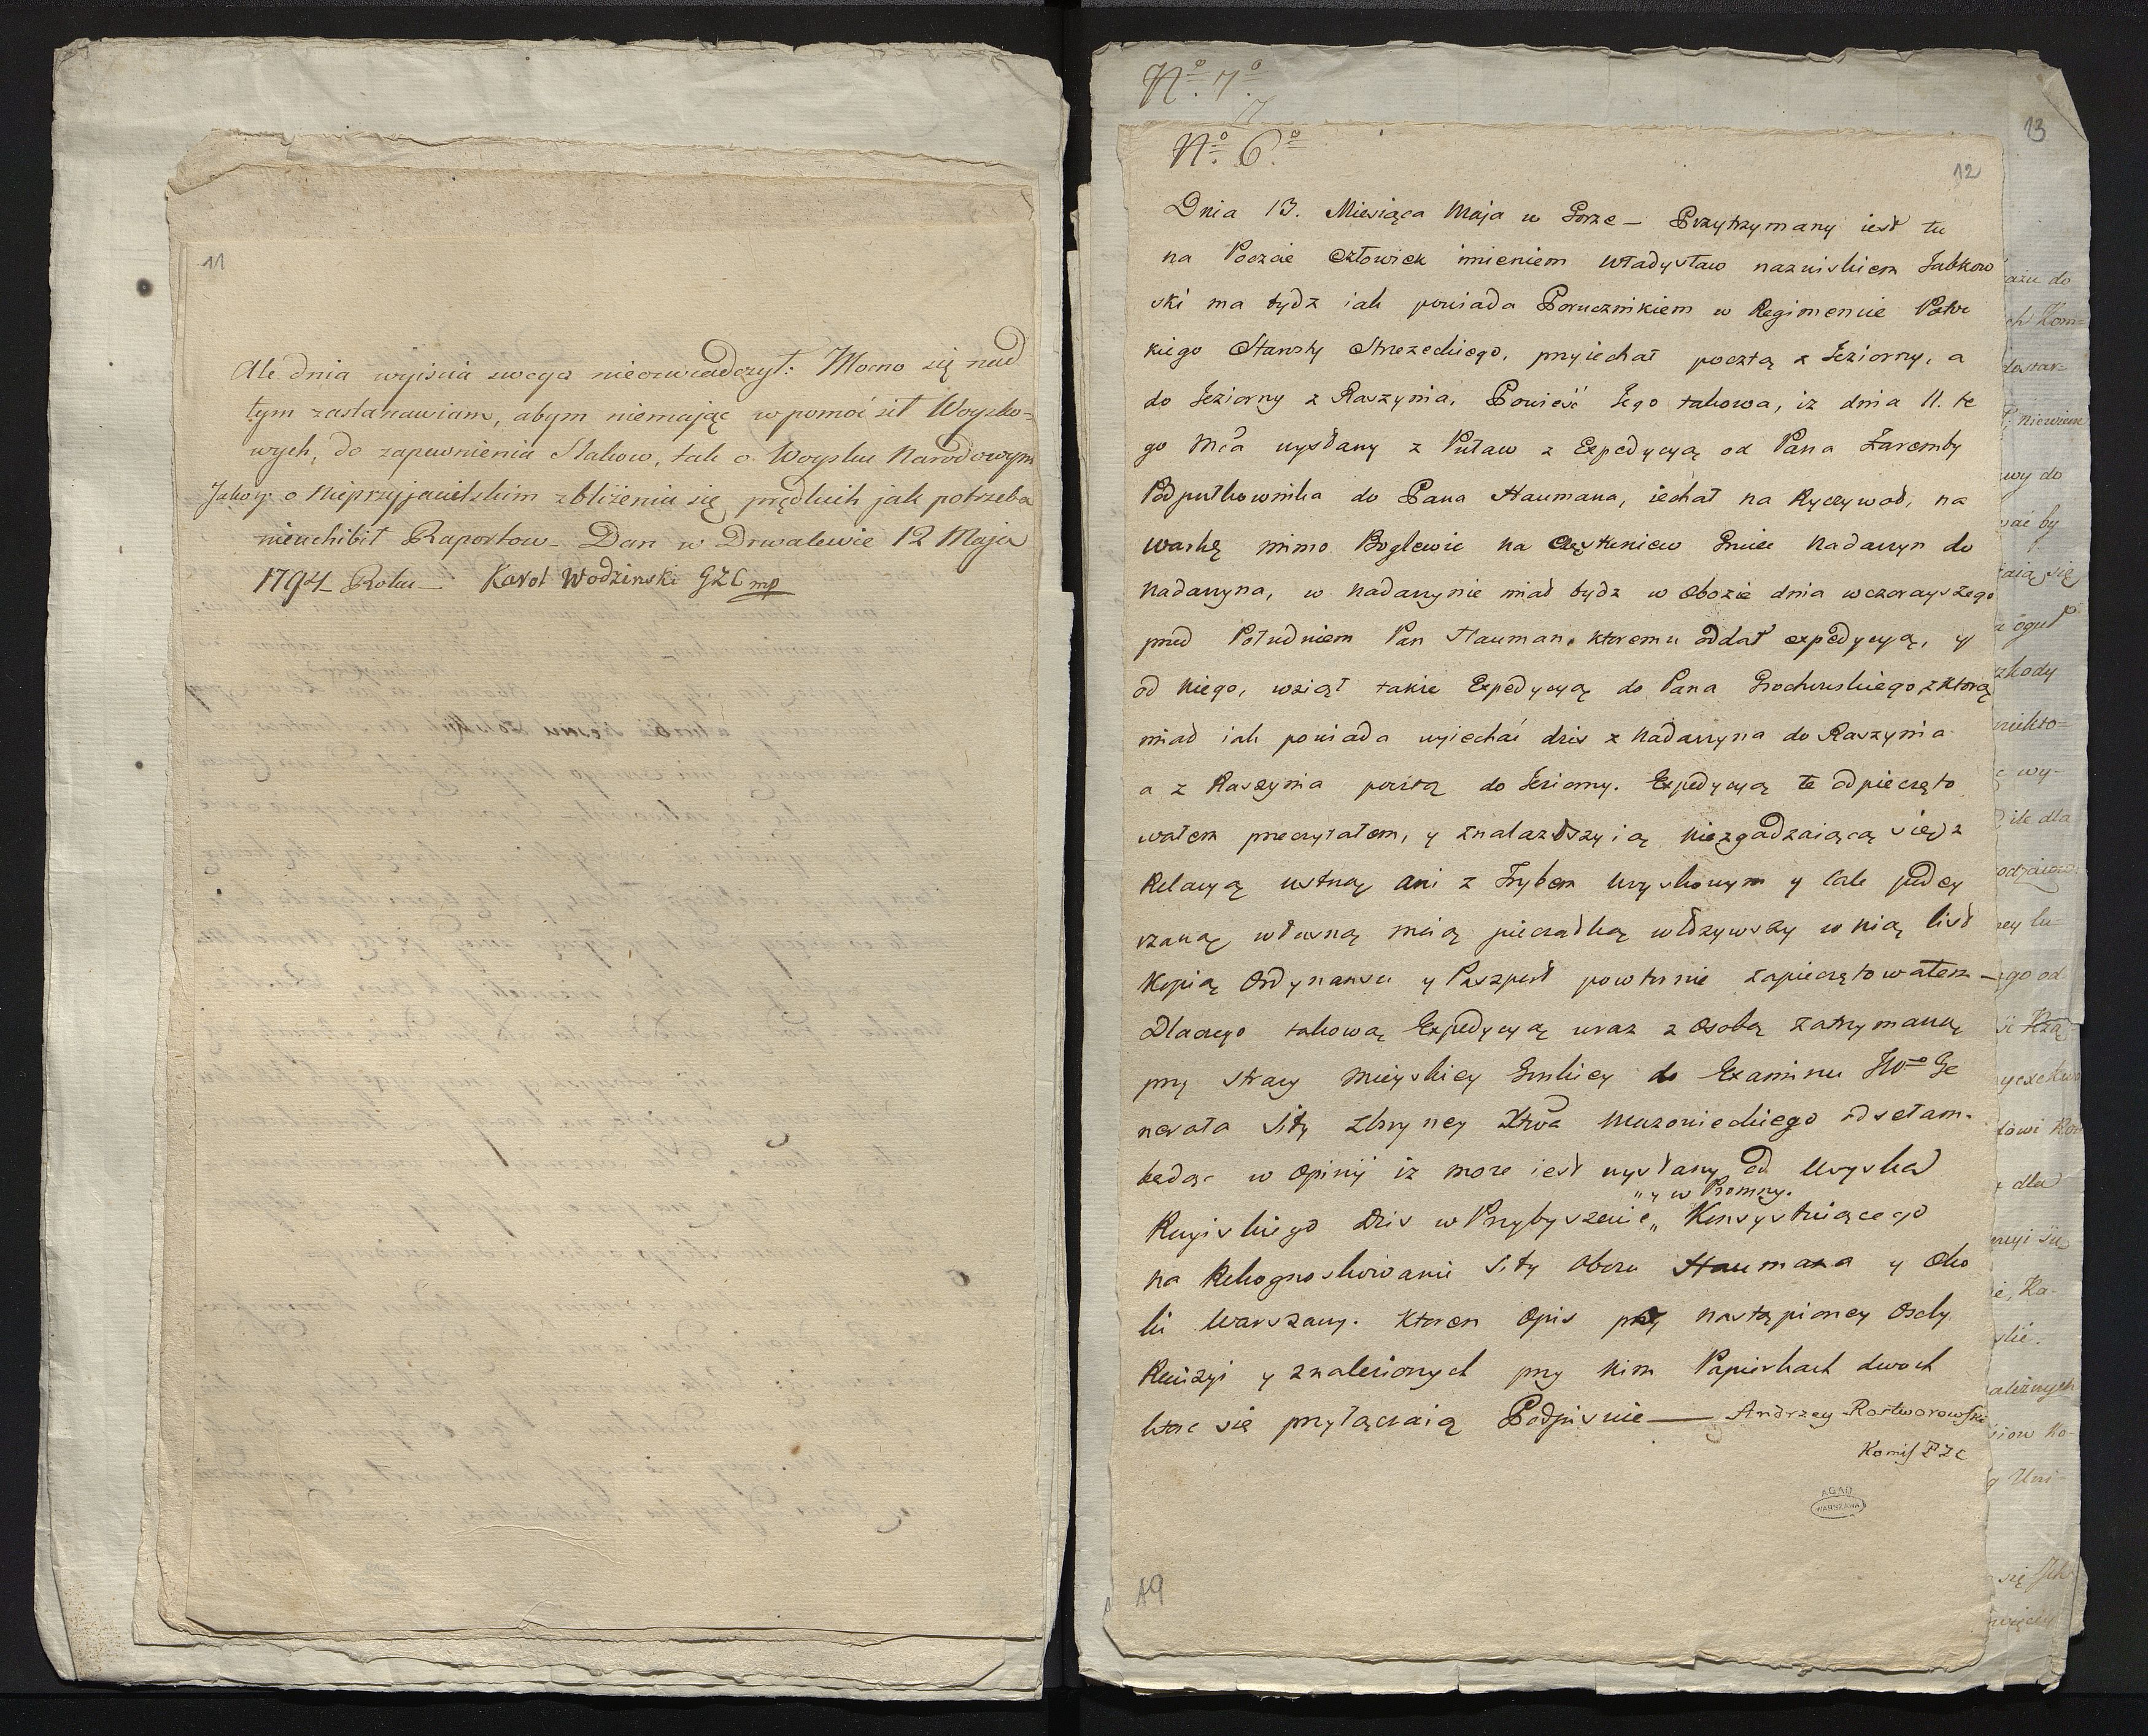 11
Ale dnia wyiścia swego nieoświadczył: Mocno się nad
tym zastanawiam, abym niemaiąc w pomoc sił Woysko=
wych, do zapewnienia Stakow, tak o Woysku Narodowym
Jako y o Nieprzyjacielskim zbliżeniu się prędkich jak potrzeba
nieuchibił Raportow. Dan w Drwalewie 12 Maja
1794 Roku — Karol Wodzinski GZC mp
No. 7o.
No. 6o.
13
12
Dnia 13. Miesiąca Maja w Gorze — Przytrzymany iest tu
na Poczcie Człowiek imieniem Władysław nazwiskiem Jabkow
ski ma bydz iak powiada Porucznikiem w Regimencie Poto
kiego Starosty Strzezeckiego, przyiechał pocztą z Jeziorny, a
do Jeziorny z Raszynia, Powieść Jego takowa, iz dnia 11. te
go Mca wysłany z Puław z Expedycyą od Pana Zaremby
Podpułkownika do Pana Haumana, iechał na Ryczywoł, na
Warkę mimo Boglewic na Czestuniew Gruiec Nadarzyn do
Nadarzyna, w Nadarzynie miał bydz w Obozie dnia wczorayszego
przed Południem Pan Hauman, ktoremu oddał expedycyą, y
od Niego, wziął takie Expedycyą do Pana Grochowskiego z ktorą
miał iak powiada wyiechać dzis z Nadarzyna do Raszynia
a z Raszynia pocztą do Jeziorny. Expedycyą te odpieczęto
wałem przeczytałem, y znalazszy ią niezgadzaiącą się z
Relacyą ustną ani z Trybem Woyskowym y Cale podey
rzaną własną moią pieczątką włozywszy w nią list
Kopią Ordynansu y Paszport powtornie zapieczętowałem —
Dlaczego takową Expedycyą wraz z Osobą zatrzymaną
przy strazy Mieyskiey Gorskiey do Examinu JWo Ge
nerała Siły zbroyney Xtwa Mazowieckiego odsełam.
będąc w Opinij iz moze iest wysłany od Woyska
„ y w Promny.
Rossyiskiego dzis w Przybyszewie „ Konsystuiącego
na Rekognoskowanie Siły Obozu Haumana y Oko
lic Warszawy. Ktoren Opis przy nastąpioney Osoby
Rewizyi y znalezionych przy nim Papierkach dwoch
ktore się przyłączaią Podpisuie — Andrzey Rostworowski
Komis PZC
AGAD
WARSZAWA
19